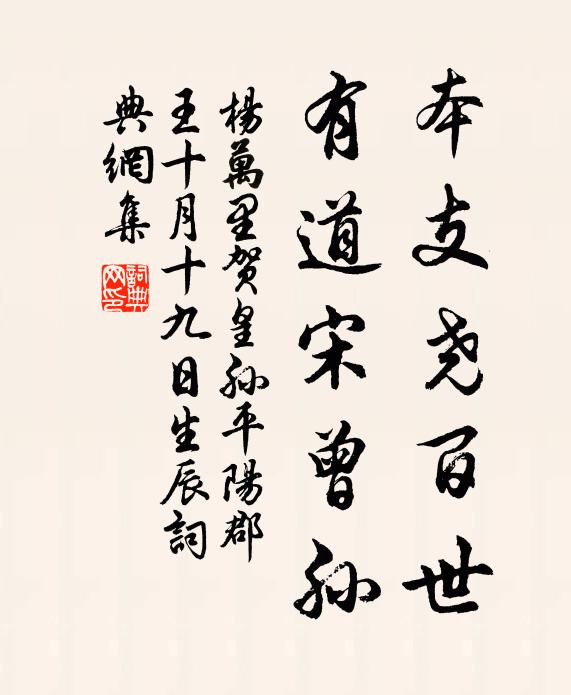 本支尧百世
有道宋曾孙
楊萬里贺皇孙平陽郡
王十月十九日生辰詞
典網集
詞典网印